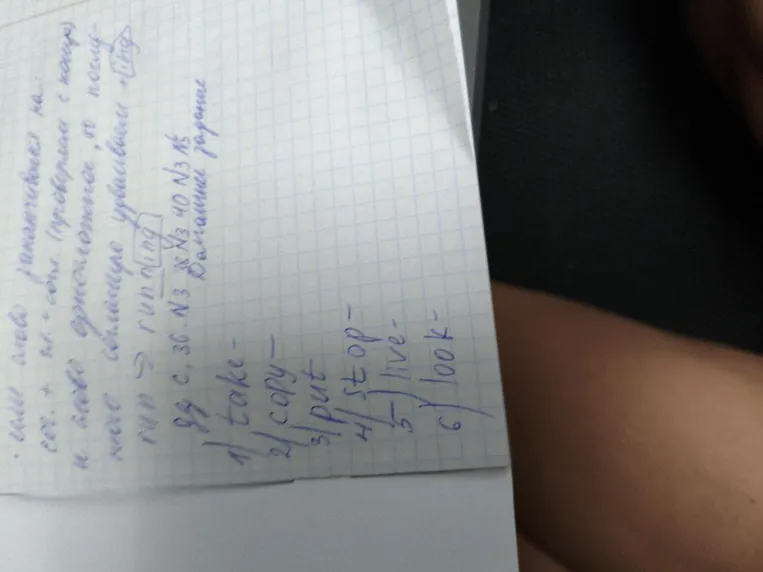 · если слово заканчивается на:
согл. + гл. + согл. (проверяем с конца)
и слово односложное, то послед-
нюю согласную удваиваем + ing
run → running
дз с. 36. N3 N3 40 N3 N5
Домашнее задание
1) take -
2) copy -
3) put
4) stop -
5) live -
6) look -